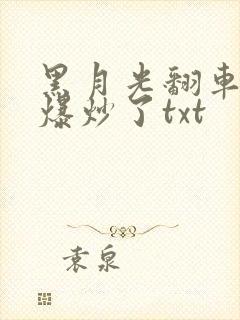 黑月光翻車
爆炒了txt
袁泉